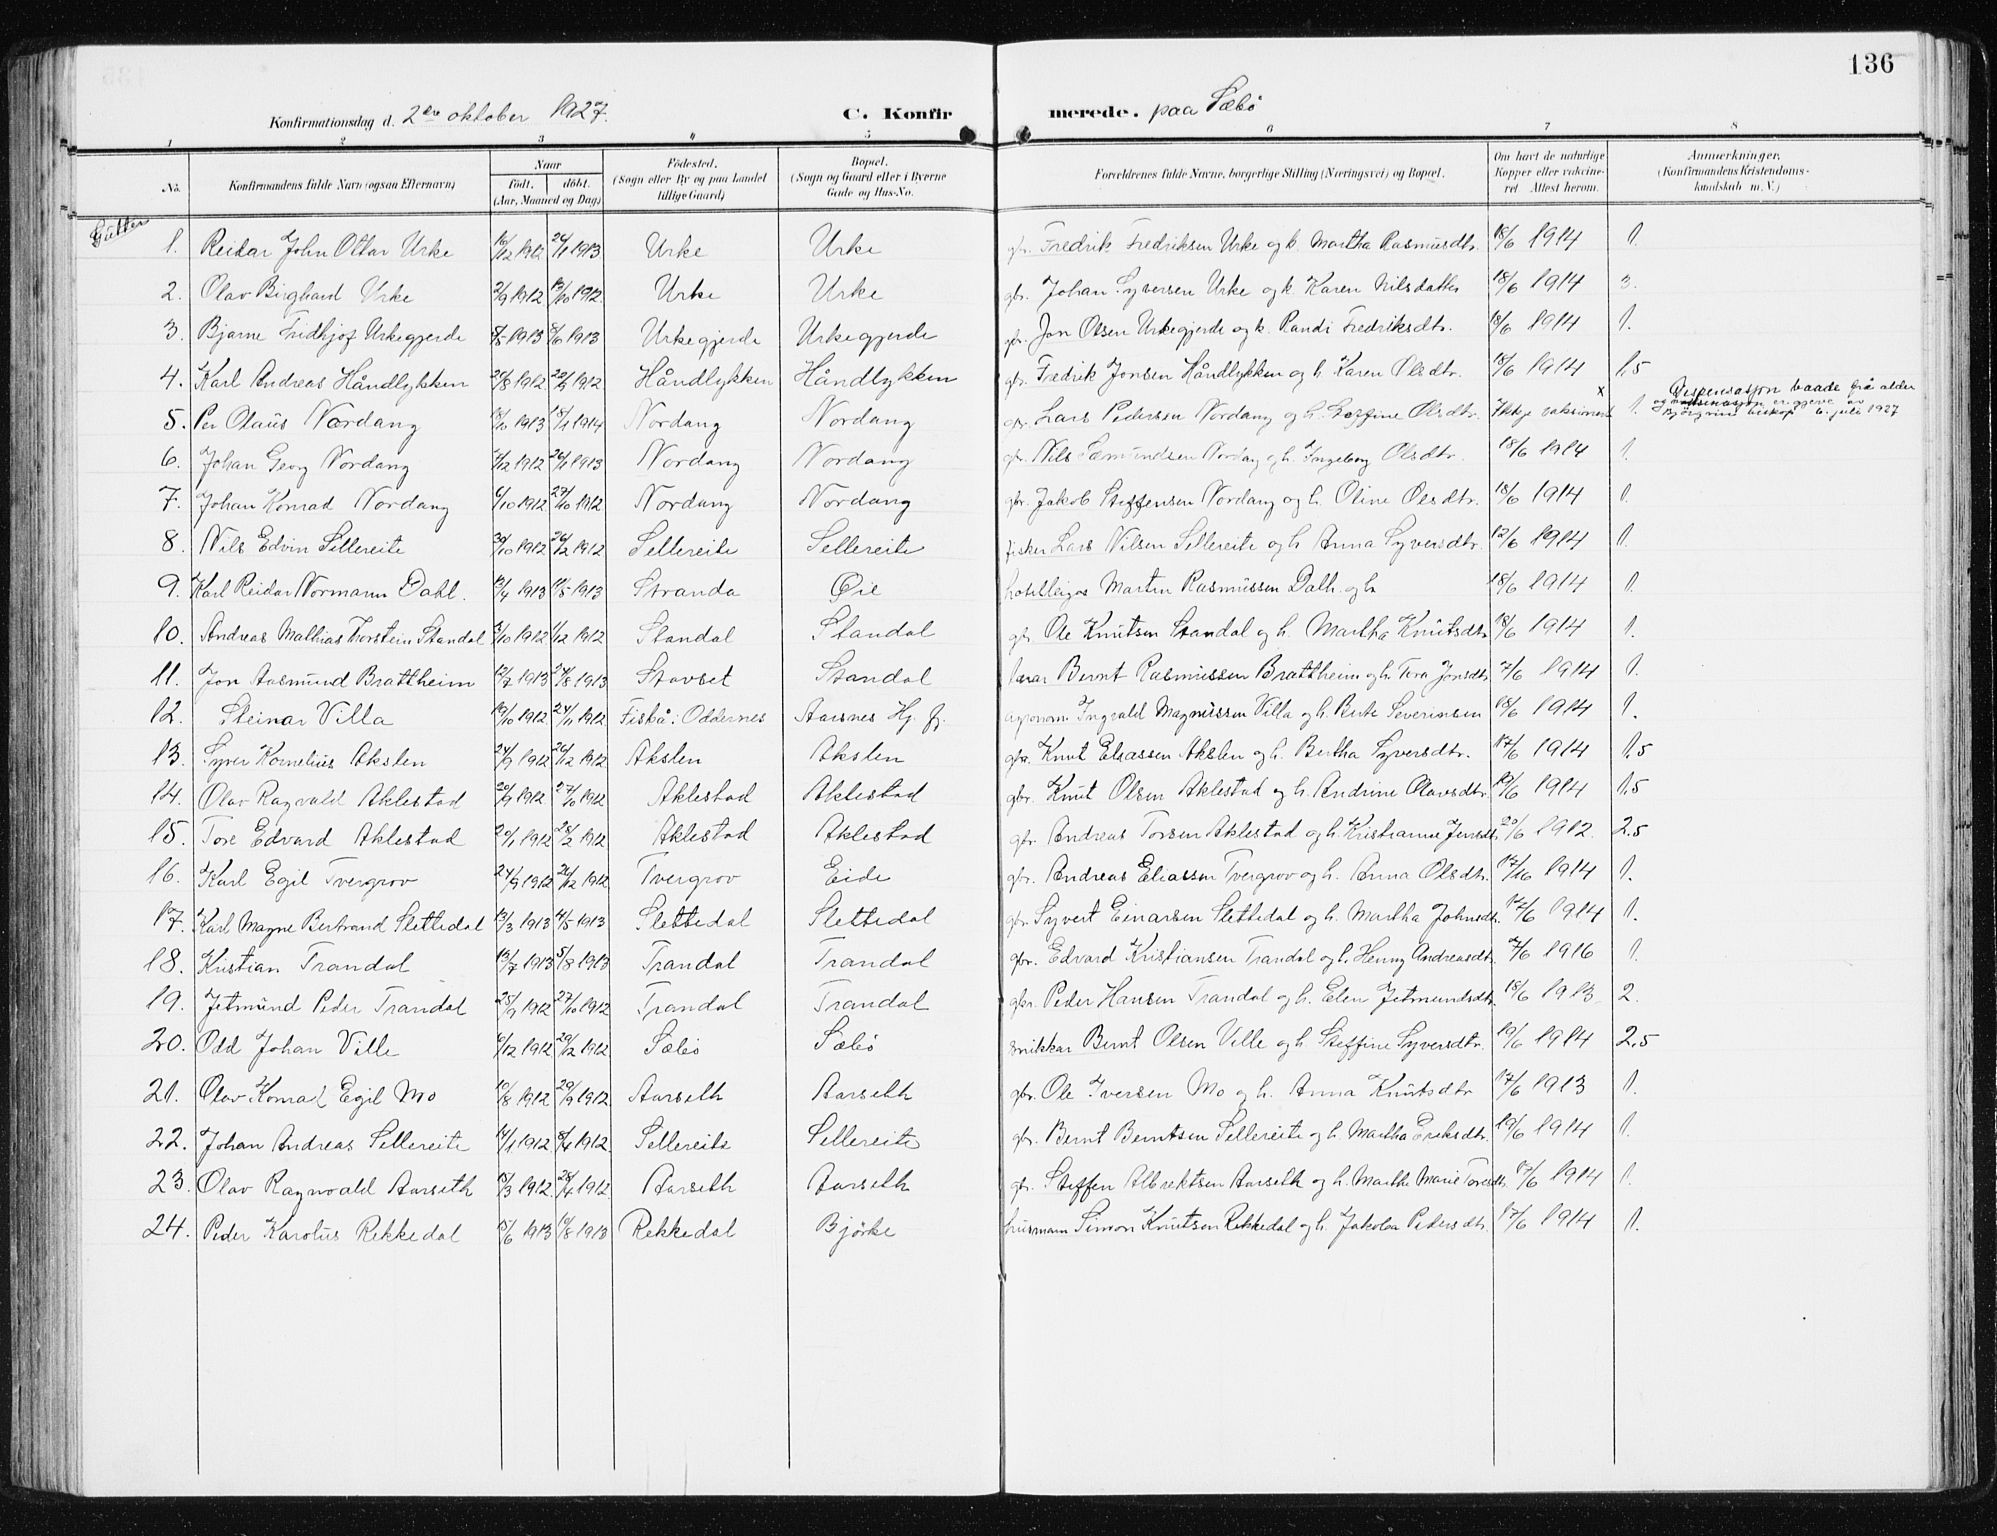 136
Konfirmationsdag d. 2den oktober 1927. C. Konfirmerede. paa Sæbø
1 2 3 4 5 6 7 8
No. Konfirmandens fulde Navn (ogsaa Efternavn) Naar født. døbt. (Aar, Maaned og Dag) Fødested. (Sogn eller By og paa Landet tillige Gaard) Bopæl. (Sogn og Gaard eller i Byerne Gade og Hus-No. Forældrenes fulde Navne, borgerlige Stilling (Næringsvei) og Bopæl. Om havt de naturlige Kopper eller vaccineret. Attest herom. Anmærkninger. (Konfirmandens Kristendomskundskab m. V.)
Gutter
1. Reidar John Ottar Urke 16/12 1912 26/1 1913 Urke Urke gbr. Fredrik Fredriksen Urke og k. Martha Rasmusdtr. 18/6 1914 1.
2. Olav Birghard Urke 2/9 1912 13/10 1912 Urke Urke gbr. Johan Syversen Urke og k. Karen Nilsdatter 18/6 1914 3.
3. Bjarne Fridthjof Urkegjerde 8/5 1913 8/6 1913 Urkegjerde Urkegjerde gbr. Jon Olsen Urkegjerde og k. Randi Fredriksdtr. 18/6 1914 1.
4. Karl Andreas Håndlykken 20/8 1912 22/9 1912 Håndlykken Håndlykken gbr. Fredrik Jonsen Håndlykken og h. Karen Olsdtr. 18/6 1914 1,5
5. Per Olaus Nordang 1913 18/1 1914 Nordang Nordang gbr. Lars Pedersen Nordang og h. Olsdtr. Ikkje vaksinert x 1. Dispensasjon baade frå alder og vaksinasjon er gjeve av Bjørgvin biskop 6. juli 1927
6. Johan Georg Nordang 1/12 1912 26/1 1913 Nordang Nordang gbr. Nils Sæmundsen Nordang og h. Ingeborg Olsdtr. 18/6 1914 1.
7. Johan Konrad Nordang 6/10 1912 27/10 1912 Nordang Nordang gbr. Jakob Steffensen Nordang og h. Oline Olsdtr. 18/6 1914 1.
8. Nils Edvin Sellereite 30/10 1912 26/12 1912 Sellereite Sellereite fisker Lars Nilsen Sellereite og h. Anna Syversdtr. 12/6 1914 1.
9. Karl Reidar Normann Dahl. 13/4 1913 11/5 1913 Stranda Øie hotelleigar Martin Rasmussen Dalh. og h 18/6 1914 1.
10. Andreas Mathias Torstein Standal 3/10 1912 1/12 1912 Standal Standal gbr. Ole Knutsen Standal og h. Martha Knutsdtr 18/6 1914 1.
11. Jon Aasmund Brattheim 12/7 1913 24/8 1913 Stavset Standal lærar Bernt Rasmussen Brattheim og h. Tora Jonsdtr 7/6 1914 1.
12. Steinar Villa 19/10 1912 24/11 1912 Fiskå: Oddernes Aarsnes Hj. fj. agronom Ingvald Magnussen Villa og h. Berte Severinsen 18/6 1914 1.
13. Syver Kornelius Akslen 24/9 1912 26/12 1912 Akslen Akslen gbr. Knut Eliassen Akslen og h. Bertha Syversdtr. 17/6 1914 1,5
14. Olav Ragvald Aklestad 20/9 1912 27/10 1912 Aklestad Aklestad gbr. Knut Olsen Aklestad og h. Andrine Olavsdtr 19/6 1914 1,5
15. Tore Edvard Aklestad 20/1 1912 25/2 1912 Aklestad Aklestad gbr. Andreas Torsen Aklestad og h. Kristianne Jensdtr. 20/6 1912. 2,5
16. Karl Egil Tvergrov 24/9 1912 26/12 1912 Tvergrov Eide gbr. Andreas Eliassen Tvergrov og h. Anna Olsdtr. 17/6 1914 1.
17. Karl Magne Bertrand Slettedal 13/3 1913 4/5 1913 Slettedal Slettedal gbr. Syvert Einarsen Slettedal og h. Martha Johnsdtr. 17/6 1914 1.
18. Kristian Trandal 13/7 1913 5/8 1913 Trandal Trandal gbr. Edvard Kristiansen Trandal og h. Henny Andreasdtr. 7/6 1916 1.
19. Jetmund Peder Trandal 25/9 1912 27/10 1912 Trandal Trandal gbr. Peder Hansen Trandal og h. Elen Jetmundsdtr. 18/6 1913 2.
20. Odd Johan Ville 6/12 1912 29/12 1912 Sæbø Sæbø snikkar Bernt Olsen Ville og h. Steffine Syversdtr. 19/6 1914 2,5
21. Olav Konrad Egil Mo 10/8 1912 29/9 1912 Aarseth Aarseth gbr. Ole Iversen Mo og h. Anna Knutsdtr 17/6 1913 1.
22. Johan Andreas Sellereite 14/1 1912 8/4 1912 Sellereite Sellereite gbr. Bernt Berntsen Sellereite og h. Martha Eriksdtr. 19/6 1914 1.
23. Olav Ragnvald Aarseth 15/3 1912 28/4 1912 Aarseth Aarseth gbr. Steffen Albrektsen Aarseth og h. Marthe Marie Toresdtr. 17/6 1914 1.
24. Peder Karolus Rekkedal 15/6 1913 17/8 1913 Rekkedal Bjørke husmann Simon Knutsen Rekkedal og h. Jakoba Pedersdtr. 17/6 1914 1.